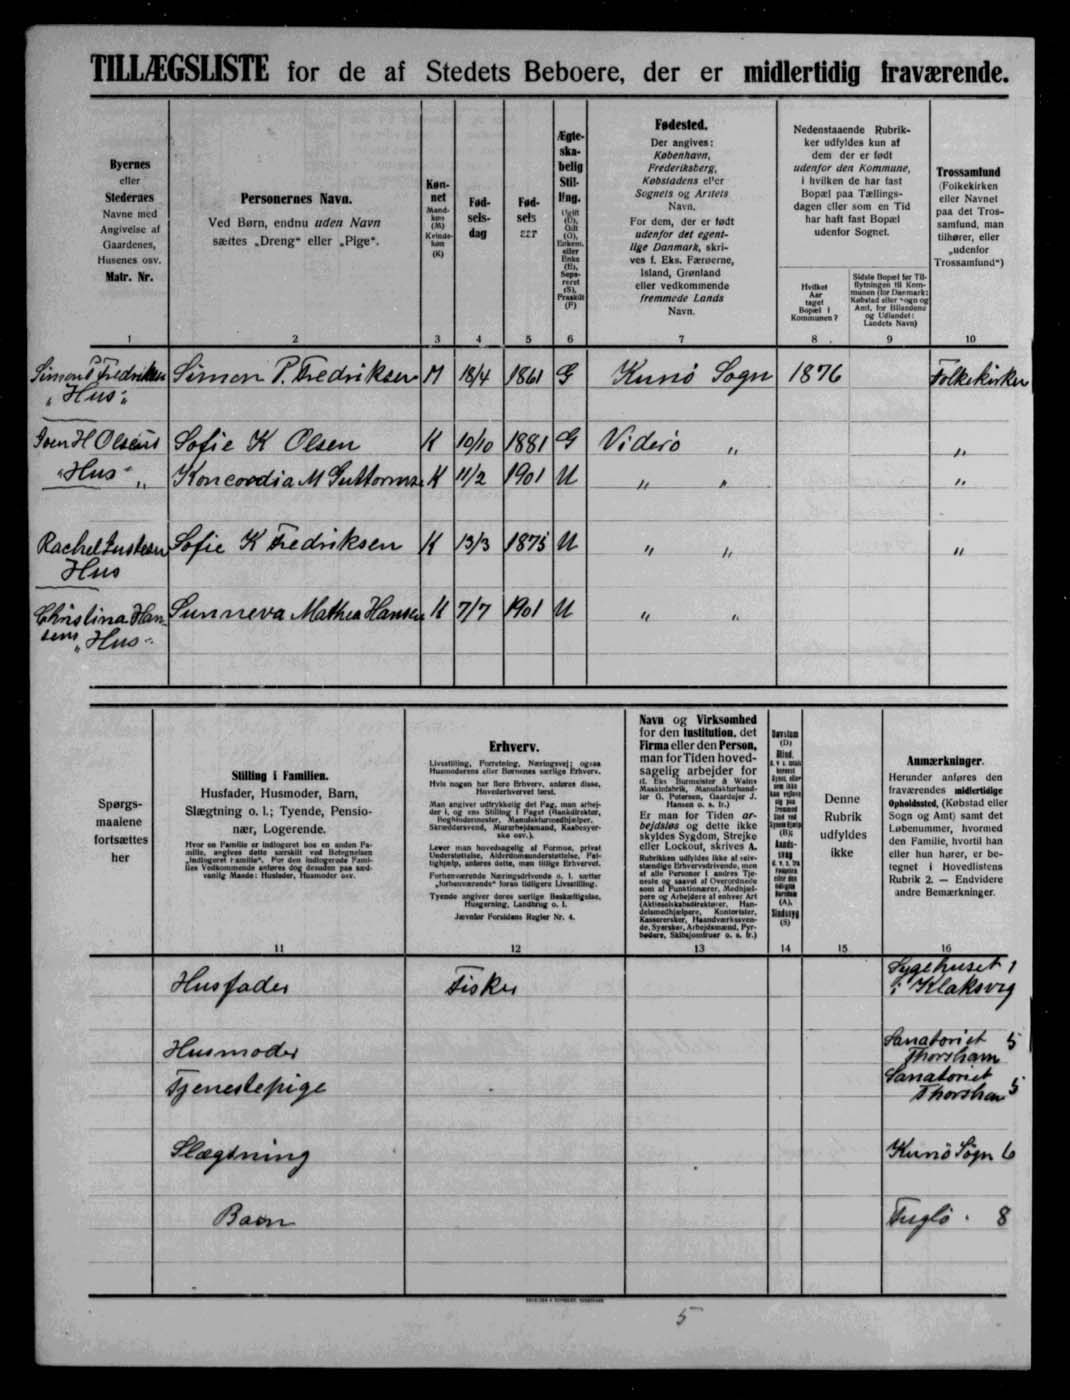 TILLÆGSLISTE for de af Stedets Beboere, der er midlertidig fraværende.
Byernes
eller
Stedernes
Navne med
Angivelse af
Gaardenes,
Husenes osv.
Matr. Nr.
Personernes Navn.
Ved Børn, endnu uden Navn
sættes „Dreng“ eller „Pige“.
Køn-
net
Mand-
køn
(M)
Kvinde-
køn
(K)
Fød-
sels-
dag
Fød-
sels
aar
Ægte-
ska-
belig
Stil-
ling.
Ugift
(U),
Gift
(G),
Enkem.
eller
Enke
(E),
Sepa-
reret
(S),
Fraskilt
(F)
Fødested.
Der angives:
København,
Frederiksberg,
Købstadens eller
Sognets og Amtets
Navn.
For dem, der er født
udenfor det egent-
lige Danmark, skri-
ves f. Eks. Færøerne,
Island, Grønland
eller vedkommende
fremmede Lands
Navn.
Nedenstaaende Rubrik-
ker udfyldes kun af
dem der er født
udenfor den Kommune,
i hvilken de har fast
Bopæl paa Tællings-
dagen eller som en Tid
har haft fast Bopæl
udenfor Sognet.
Hvilket
Aar
taget
Bopæl i
Kommunen?
Sidste Bopæl før Til-
flytningen til Kom-
munen (for Danmark:
Købstad eller Sogn og
Amt, for Bilandene
og Udlandet:
Landets Navn)
Trossamfund
(Folkekirken
eller Navnet
paa det Tros-
samfund, man
tilhører, eller
„udenfor
Trossamfund“)
1 2 3 4 5 6 7 8 9 10
Simon P Fredriksen Simon P. Fredriksen M 18/4 1861 G Kunö Sogn 1876 Folkekirken
„Hus“
H Olsens Sofie K Olsen K 10/10 1881 G Viderö „ „
„Hus“ „ Koncordia M Guttormsen K 11/2 1901 U „ „ „
Rachel Justesen Sofie K Fredriksen K 13/3 1875 U „ „ „
Hus
Christina Han- Sunneva Mathea Hansen K 7/7 1901 U „ „
sens „Hus“
Spørgs-
maalene
fortsættes
her
Stilling i Familien.
Husfader, Husmoder, Barn,
Slægtning o. l.; Tyende, Pensio-
nær, Logerende.
Hvor en Familie er indlogeret hos en anden Fa-
milie, angives dette særskilt ved Betegnelsen
„indlogeret Familie“. For den indlogerede Fami-
lies Vedkommende anføres dog desuden paa sæd-
vanlig Maade: Husfader, Husmoder osv.
Erhverv.
Livsstilling, Forretning, Næringsvej; ogsaa
Husmoderens eller Børnenes særlige Erhverv.
Hvis nogen har flere Erhverv, anføres disse,
Hovederhvervet først.
Man angiver udtrykkelig det Fag, man arbej-
der i, og ens Stilling i Faget (Bankdirektør,
Boghindermester, Manufakturmedhjælper,
Skræddersvend, Murarbejdsmand, Kaabesyer-
ske osv.).
Lever man hovedsagelig af Formue, privat
Understøttelse, Alderdomsunderstøttelse, Fat-
tighjælp, anføres dette, men tillige Erhvervet.
Forhenværende Næringsdrivende o. l. sætter
„forhenværende“ foran tidligere Livsstilling.
Tyende angiver deres særlige Beskæftigelse,
Husgerning, Landbrug o. l.
Jævnfør Forsidens Regler Nr. 4.
Navn og Virksomhed
for den Institution, det
Firma eller den Person,
man for Tiden hoved-
sagelig arbejder for
(f. Eks. Burmeister & Wains
Maskinfabrik, Manufakturhand-
ler G. Petersen, Gaardejer J.
Hansen o. s. fr.)
Er man for Tiden ar-
bejdsløs og dette ikke
skyldes Sygdom, Strejke
eller Lockout, skrives A.
Rubrikken udfyldes ikke af selv-
stændige Erhvervsdrivende, men
af alle Personer i andres Tje-
neste og saavel af Overordnede
som af Funktionærer, Medhjæl-
pere og Arbejdere af enhver Art
(Aktieselskabsdirektører, Han-
delsmedhjælpere, Kontorister,
Kasserersker, Haandværkssven-
de, Syersker, Arbejdsmænd, Fyr-
bødere, Skibsjomfruer o. s. fr.)
Døvstum
(D)
Blind,
(B);
Aands-
svag
(A),
Sindssyg
(S)
Denne
Rubrik
udfyldes
ikke
Anmærkninger.
Herunder anføres den
fraværendes midlertidige
Opholdssted, (Købstad eller
Sogn og Amt) samt det
Løbenummer, hvormed
den Familie, hvortil han
eller hun hører, er be-
tegnet i Hovedlistens
Rubrik 2. — Endvidere
andre Bemærkninger.
11 12 13 14 15 16
Husfader Fisker Sygehuset 1
i Klaksvig
Husmoder Sanatoriet 5
Thorshavn
Tjenestepige Sanatoriet
Thorshavn 5
Slægtning Kunö Sogn 6
Barn Fuglö. 8
5